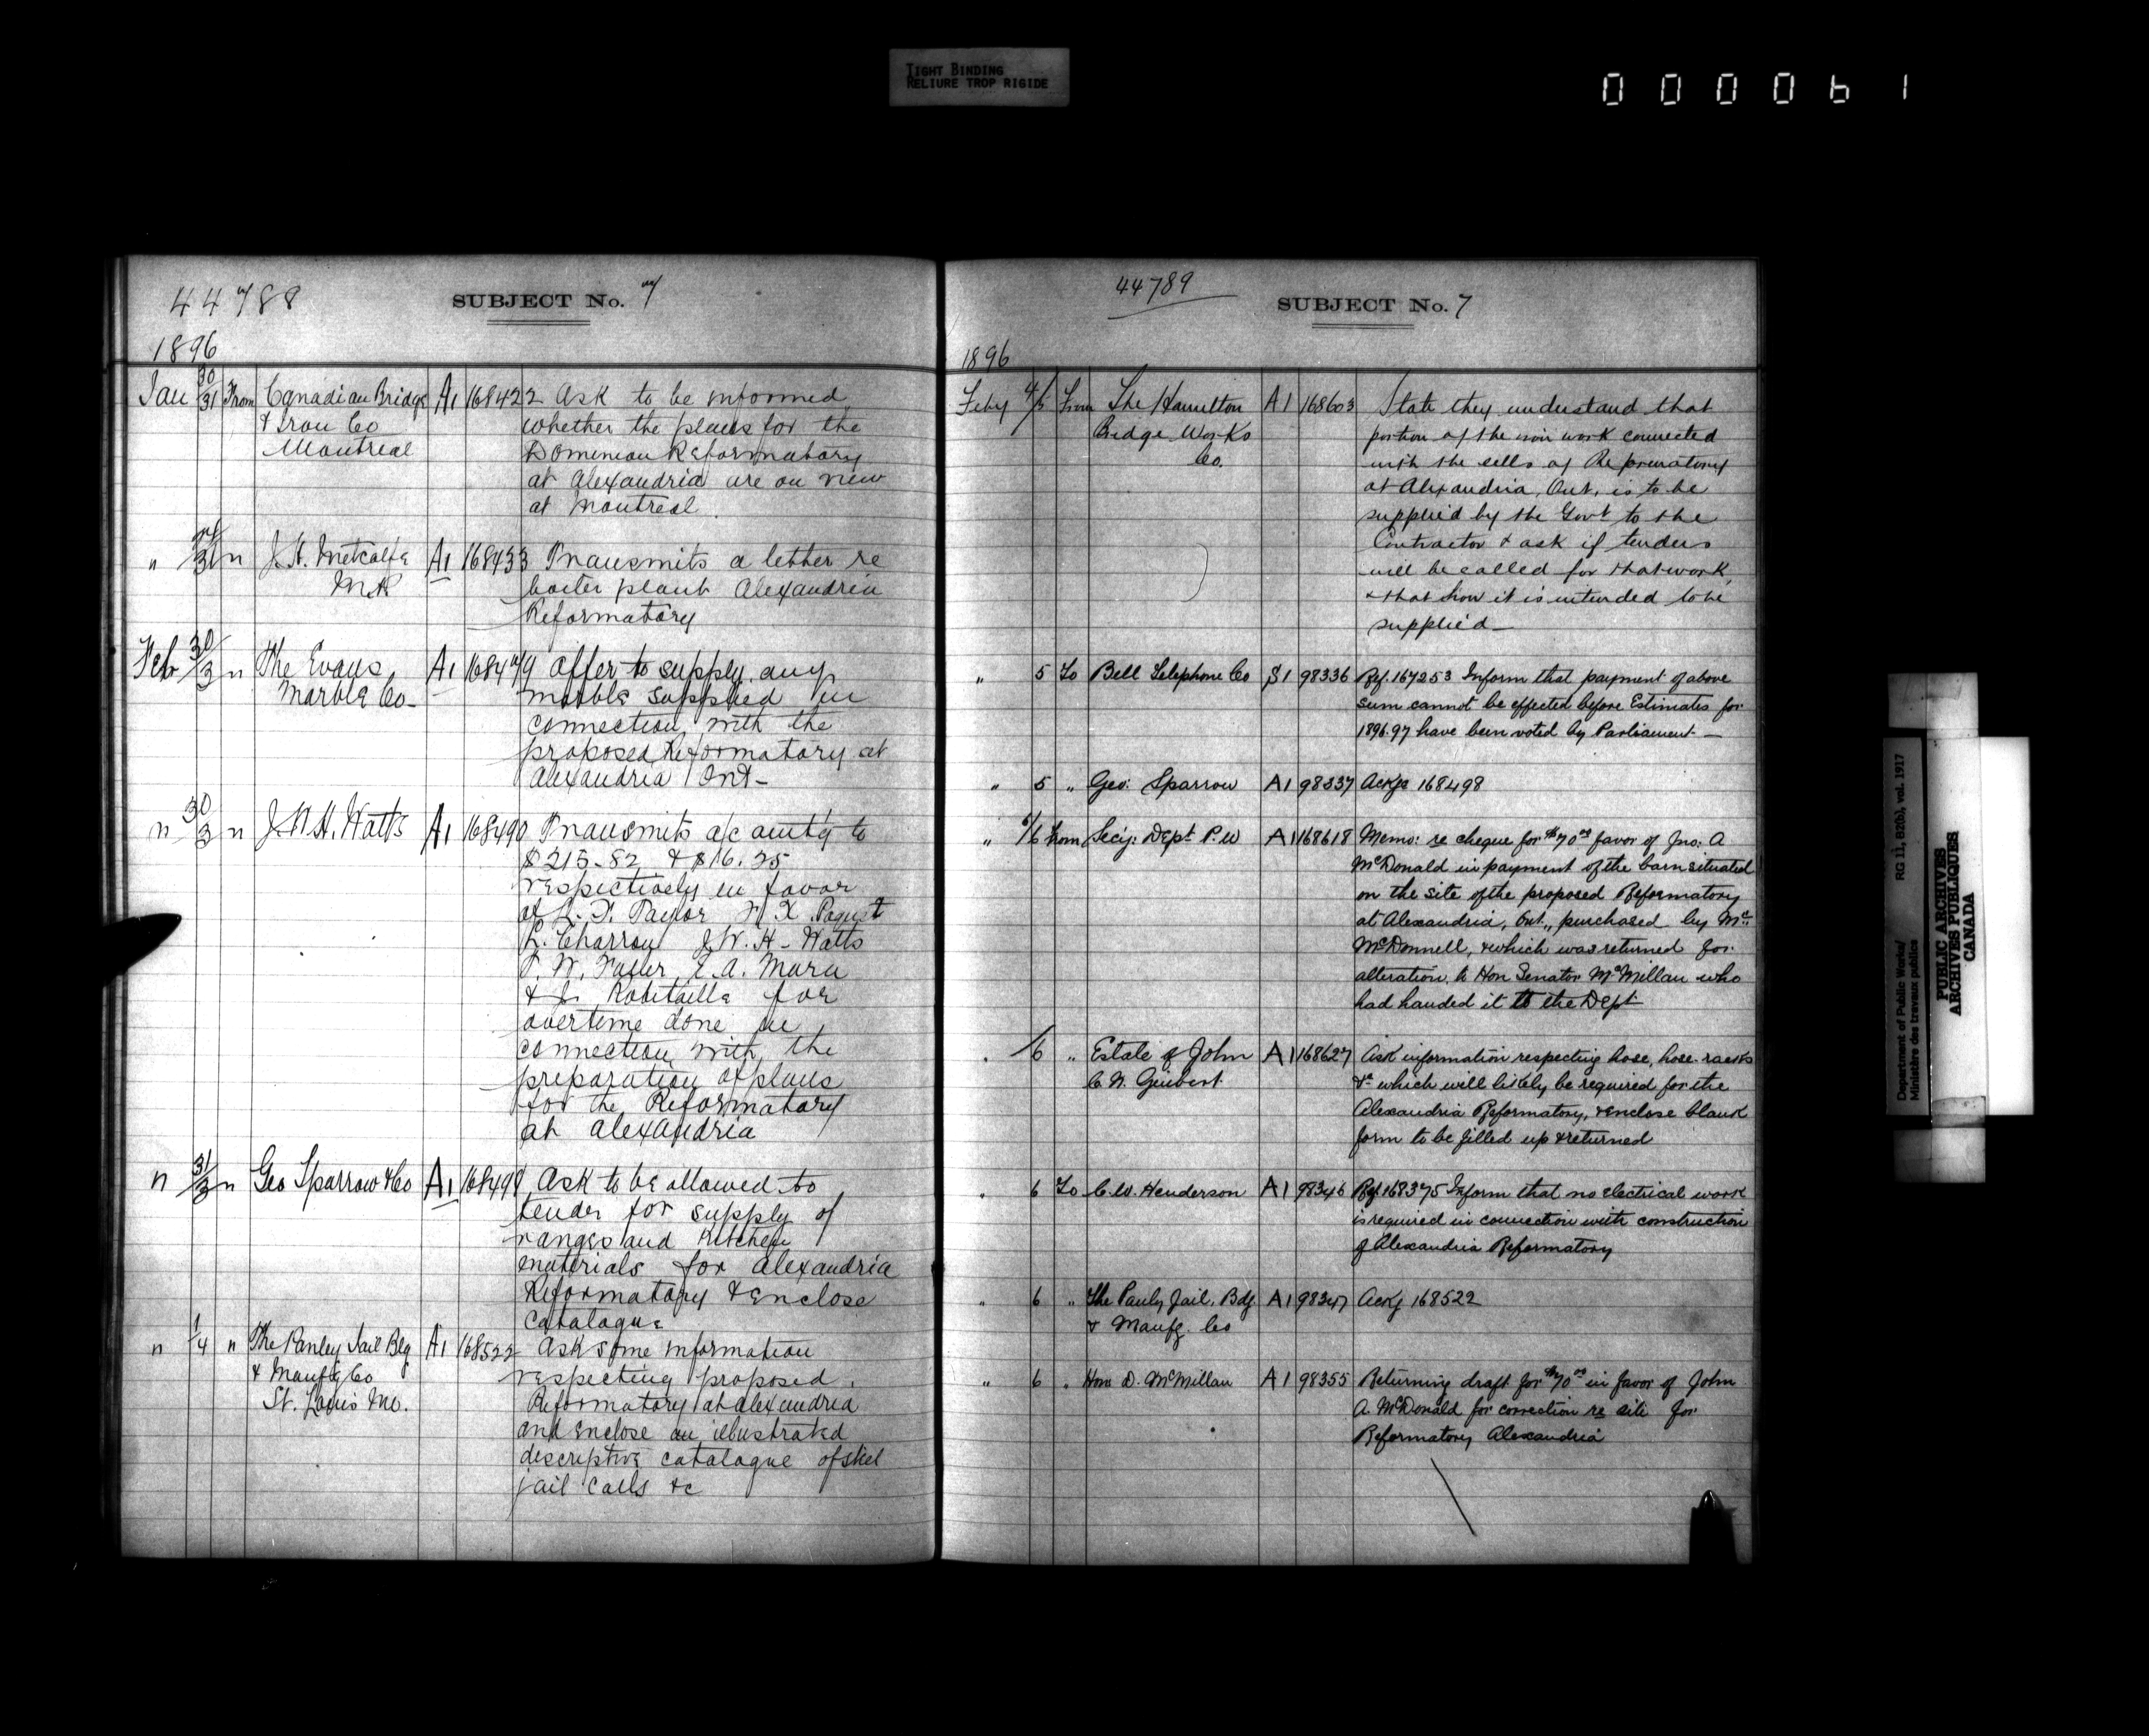 TIGHT BINDING
RELIURE TROP RIGIDE
000061
44788 SUBJECT No. 7
1896
Jan 30/31 From Canadian Bridge A1 168422 Ask to be informed
& Iron Co whether the plans for the
Montreal Dominion Reformatory
at Alexandria are on view
at Montreal.
" /31 " J. H. Metcalfe A1 168433 Transmits a letter re
M.P. boiler plant Alexandria
Reformatory
Feb 30/3 " The Evans A1 168479 Offer to supply any
Marble Co- marble supplied in
connection with the
proposed Reformatory at
Alexandria Ont-
" 30/3 " J. W. H. Watts A1 168490 Transmits a/c amt'g to
$215-82 & $16.25
respectively in favor
of L. F. Taylor F. X.
L. Charron J. W. H- Watts
T. W. Fuller, E. A. Mara
& J. Robitaille for
overtime done in
connection with the
preparation of plans
for the Reformatory
at Alexandria
" 31/3 " Geo Sparrow & Co A1 168498 Ask to be allowed to
tender for supply of
ranges and Kitchen
materials for Alexandria
Reformatory & Enclose
Catalogue
" 1/4 " The Panley Jail Blg A1 168522 Ask some information
& Manufg Co respecting proposed
St. Louis Mo. Reformatory at Alexandria
and Enclose an illustrated
descriptive catalogue of steel
jail Cells &c
44789
SUBJECT No. 7
1896
Feby 4/5 From The Hamilton A1 168603 State they understand that
Bridge Works portion of the iron work connected
Co. with the cells of Reformatory
at Alexandria, Ont, is to be
supplied by the Govt to the
Contractor & ask if tenders
will be called for that work,
& that how it is intended to be
supplied-
" 5 To Bell Telephone Co S1 98336 Ref. 167253 Inform that payment of above
sum cannot be effected before Estimates for
1896-97 have been voted by Parliament-
" 5 " Geo: Sparrow A1 98337 Ackgs 168498
" /6 From Secy: Dept P.W A1 168618 Memo: re cheque for $70 00 favor of Jno: A
McDonald in payment of the barn situated
on the site of the proposed Reformatory
at Alexandria, Ont., purchased by Mr
McDonnell, & which was returned for
alteration to Hon Senator McMillan who
had handed it to the Dept
" /6 " Estate of John A1 168627 Ask information respecting hose, hose-racks
C. N. &c which will likely be required for the
Alexandria Reformatory, & enclose blank
form to be filled up & returned
" 6 To C. W. Henderson A1 98346 Ref 168375 Inform that no electrical work
is required in connection with construction
of Alexandria Reformatory
" 6 " The Pauly Jail, Bdg A1 98347 Ackg 168522
& Manfg. Co
" 6 " Hon D. McMillan A1 98355 Returning draft for $70 00 in favor of John
A. McDonald for correction re site for
Reformatory Alexandria
Department of Public Works/ RG 11, B2(b), vol. 1917
Ministère des travaux publics
PUBLIC ARCHIVES
ARCHIVES PUBLIQUES
CANADA